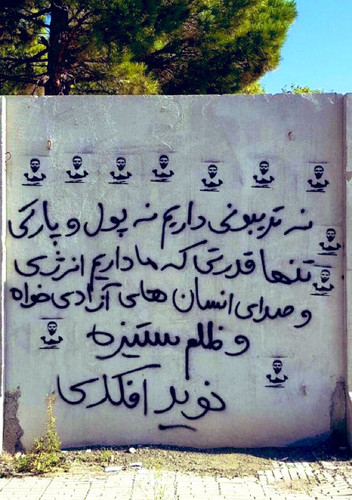 نه تریبونی داریم نه پول و پارتی
تنها قدرتی که ما داریم انرژی
و صدای انسان های آزادی خواه
و ظلم ستیزه
نوید افکاری